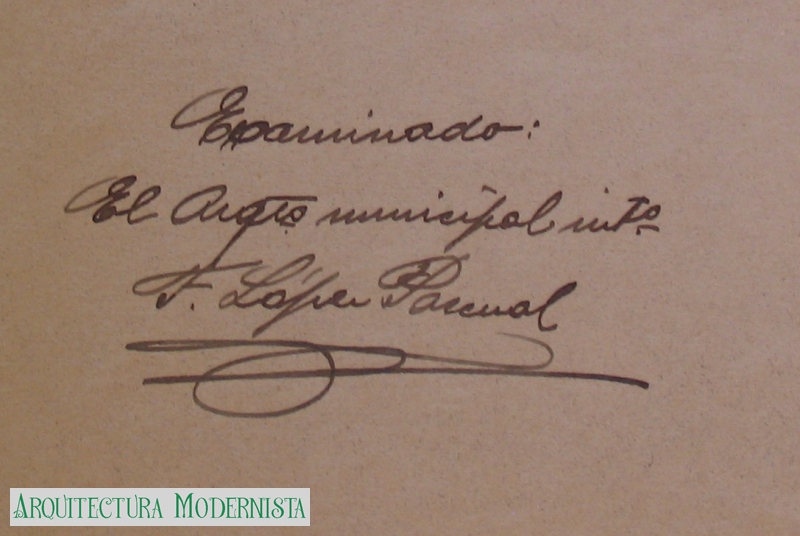 Examinado:
El Arqto municipal into
F. López Pascual
Arquitectura Modernista